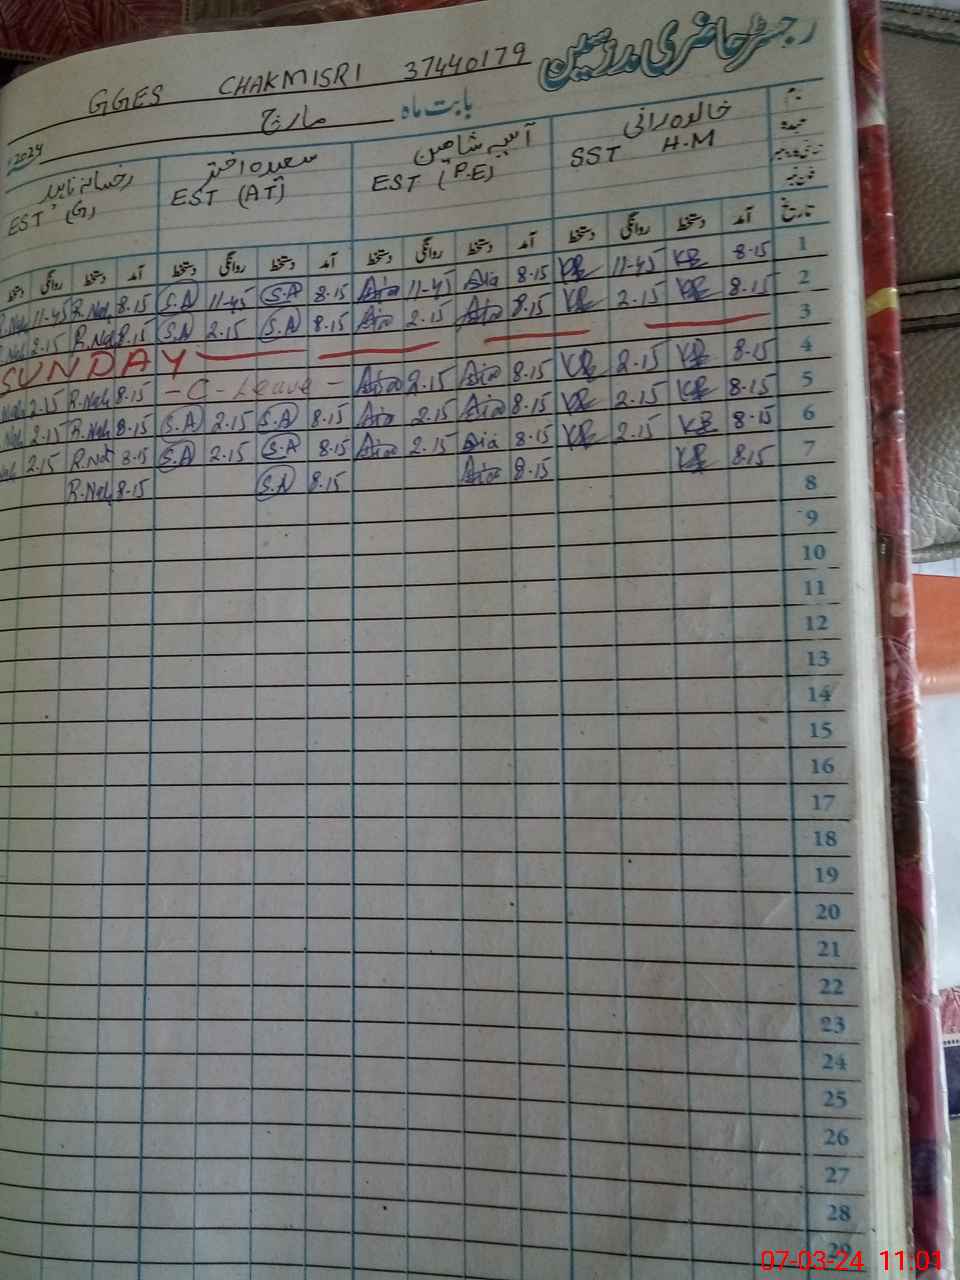 رجسٹر حاضری مدرسین
GGES CHAKMISRI 37440179
بابت ماہ مارچ 2024
نام خالدہ رانی آسیہ شاہین سعیدہ اختر رخسانہ ناہید
عہدہ SST H.M EST (P.E) EST (AT) EST (G)
تاریخ آمد دستخط روانگی دستخط آمد دستخط روانگی دستخط آمد دستخط روانگی دستخط آمد دستخط روانگی دستخط
1 8.15 KR 11-45 KR 8.15 Asia 11-45 Asia 8.15 S.A 11-45 S.A 8.15 R.Nah 11-45 R.Nah
2 8.15 KR 2.15 KR 8.15 Asia 2.15 Asia 8.15 S.A 2.15 S.A 8.15 R.Nah 2.15 R.Nah
3 SUNDAY
4 8.15 KR 2.15 KR 8.15 Asia 2.15 Asia - C - Leave - 8.15 R.Nah 2.15 R.Nah
5 8.15 KR 2.15 KR 8.15 Asia 2.15 Asia 8.15 S.A 2.15 S.A 8.15 R.Nah 2.15 R.Nah
6 8.15 KR 2.15 KR 8.15 Asia 2.15 Asia 8.15 S.A 2.15 S.A 8.15 R.Nah 2.15 R.Nah
7 8.15 KR 8.15 Asia 8.15 S.A 8.15 R.Nah
8
9
10
11
12
13
14
15
16
17
18
19
20
21
22
23
24
25
26
27
28
29
07-03-24 11:01